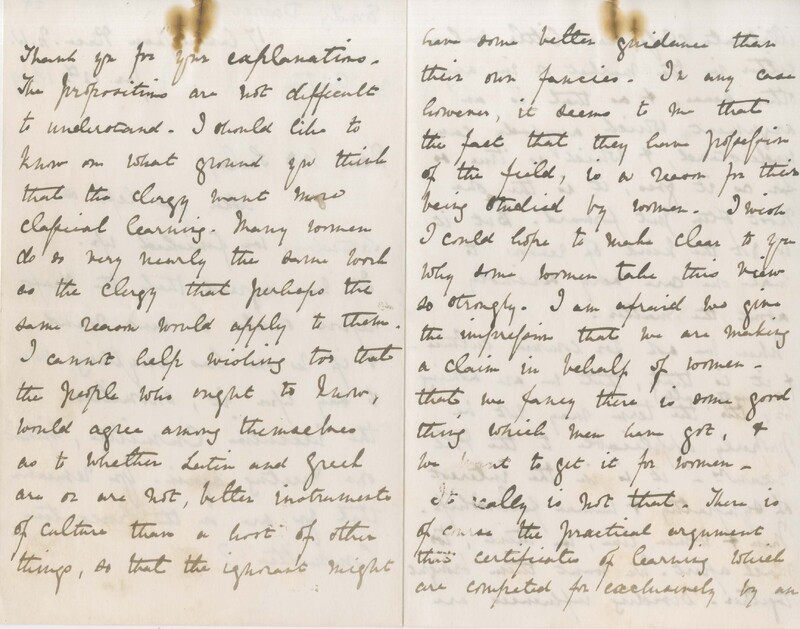 Thank yo for your explanations.
The propositions are not difficult
to understand. I should like to
know on what ground you think
that the clergy want more
classical learning. Many women
do so very nearly the same work
as the clergy that perhaps the
same reason would apply to them.
I cannot help wishing too that
the people who ought to know,
would agree among themselves
as to whether Latin and Greek
are or are not, better instruments
of culture than a host of other
things, so that the ignorant might
have some better guidance than
their own fancies. In any case
however, it seems to me that
the fact that they have possession
of the field, is a reason for their
being studied by women. I wish
I could hope to make clear to you
why some women take this view
so strongly. I am afraid we give
the impression that we are making
a claim in behalf of women -
that we fancy there is some good
thing which men have got, &
we want to get it for women -
It really is not that. There is
of course the practical argument
that certificates of learning which
are competed for exclusively by an